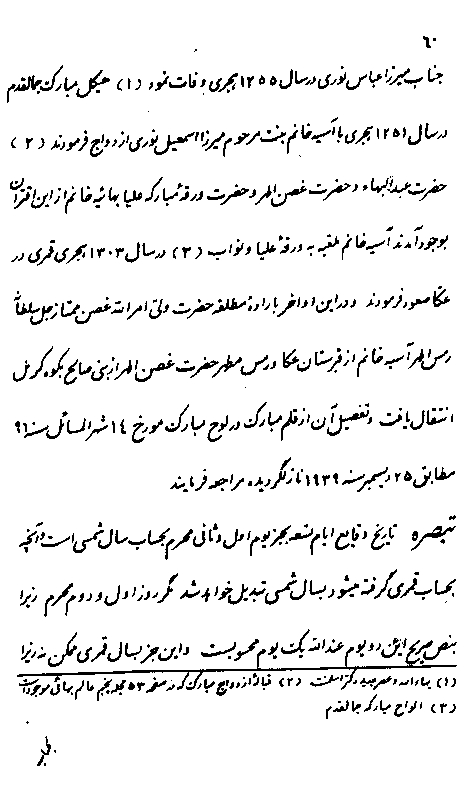 ٦٠
جناب میرزا عباس نوری در سال ١٢٥٥ هجری وفات نمود (١) هیکل مبارک جمالقدم
در سال ١٢٥١ هجری با آسیه خانم بنت مرحوم میرزا اسمعیل نوری ازدواج فرمودند (٢)
حضرت عبدالبهاء و حضرت غصن اطهر و حضرت ورقهٔ مبارکه علیا بهائیه خانم از این اقتران
بوجود آمدند آسیه خانم ملقبه به ورقهٔ علیا و نواب (٣) در سال ١٣٠٣ هجری قمری در
عکا صعود فرمودند و در این اواخر باراده مطلقه حضرت ولی امرالله غصن ممتاز جل سلطانه
رمس اطهر آسیه خانم از قبرستان عکا و رمس مطهر حضرت غصن اطهر از نبی صالح بکوه کرمل
انتقال یافت و تفصیل آن از قلم مبارک در لوح مبارک مورخ ١٤ شهر المسائل سنه ٩٦
مطابق ٢٥ دیسمبر سنه ١٩٣٩ نازل گردیده مراجعه فرمایند
تبصره تاریخ وقایع ایام تسعه بجز یوم اول و ثانی محرم بحساب سال شمسی است و آنچه
بحساب قمری گرفته میشود بسال شمسی تبدیل خواهد شد مگر روز اول و دوم محرم زیرا
بنص صریح این دو یوم عندالله یک یوم محسوبست و این جز بسال قمری ممکن نه زیرا
(١) بهاءالله و عصر جدید دکتر اسلمنت (٢) قبالهٔ ازدواج مبارک که در صفحه ٥٣ جلد پنجم عالم بهائی موجود است
(٣) الواح مبارکه جمالقدم